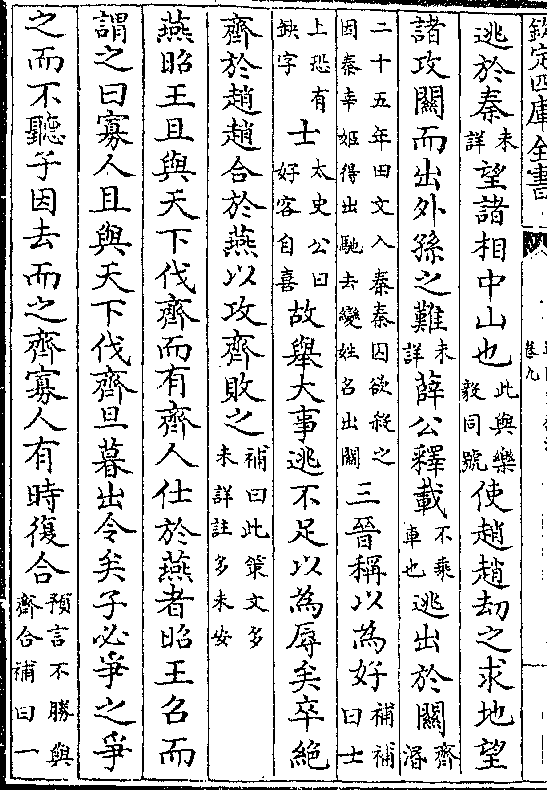 欽定四庫全書
卷九
逃於秦未詳望諸相中山也此與樂毅同號使趙趙劫之求地望
諸攻關而出外孫之難未詳薛公釋載不乘車也逃出於關齊湣
二十五年田文入秦秦囚欲殺之因秦幸姬得出馳去變姓名出關三晉稱以為好補補曰士
上恐有缺字士太史公曰好客自喜故舉大事逃不足以為辱矣卒絕
齊於趙趙合於燕以攻齊敗之補曰此策文多未詳註多未安
燕昭王且與天下伐齊而有齊人仕於燕者昭王召而
謂之曰寡人且與天下伐齊旦暮出令矣子必爭之爭
之而不聽子因去而之齊寡人有時復合預言不勝與齊合補曰一